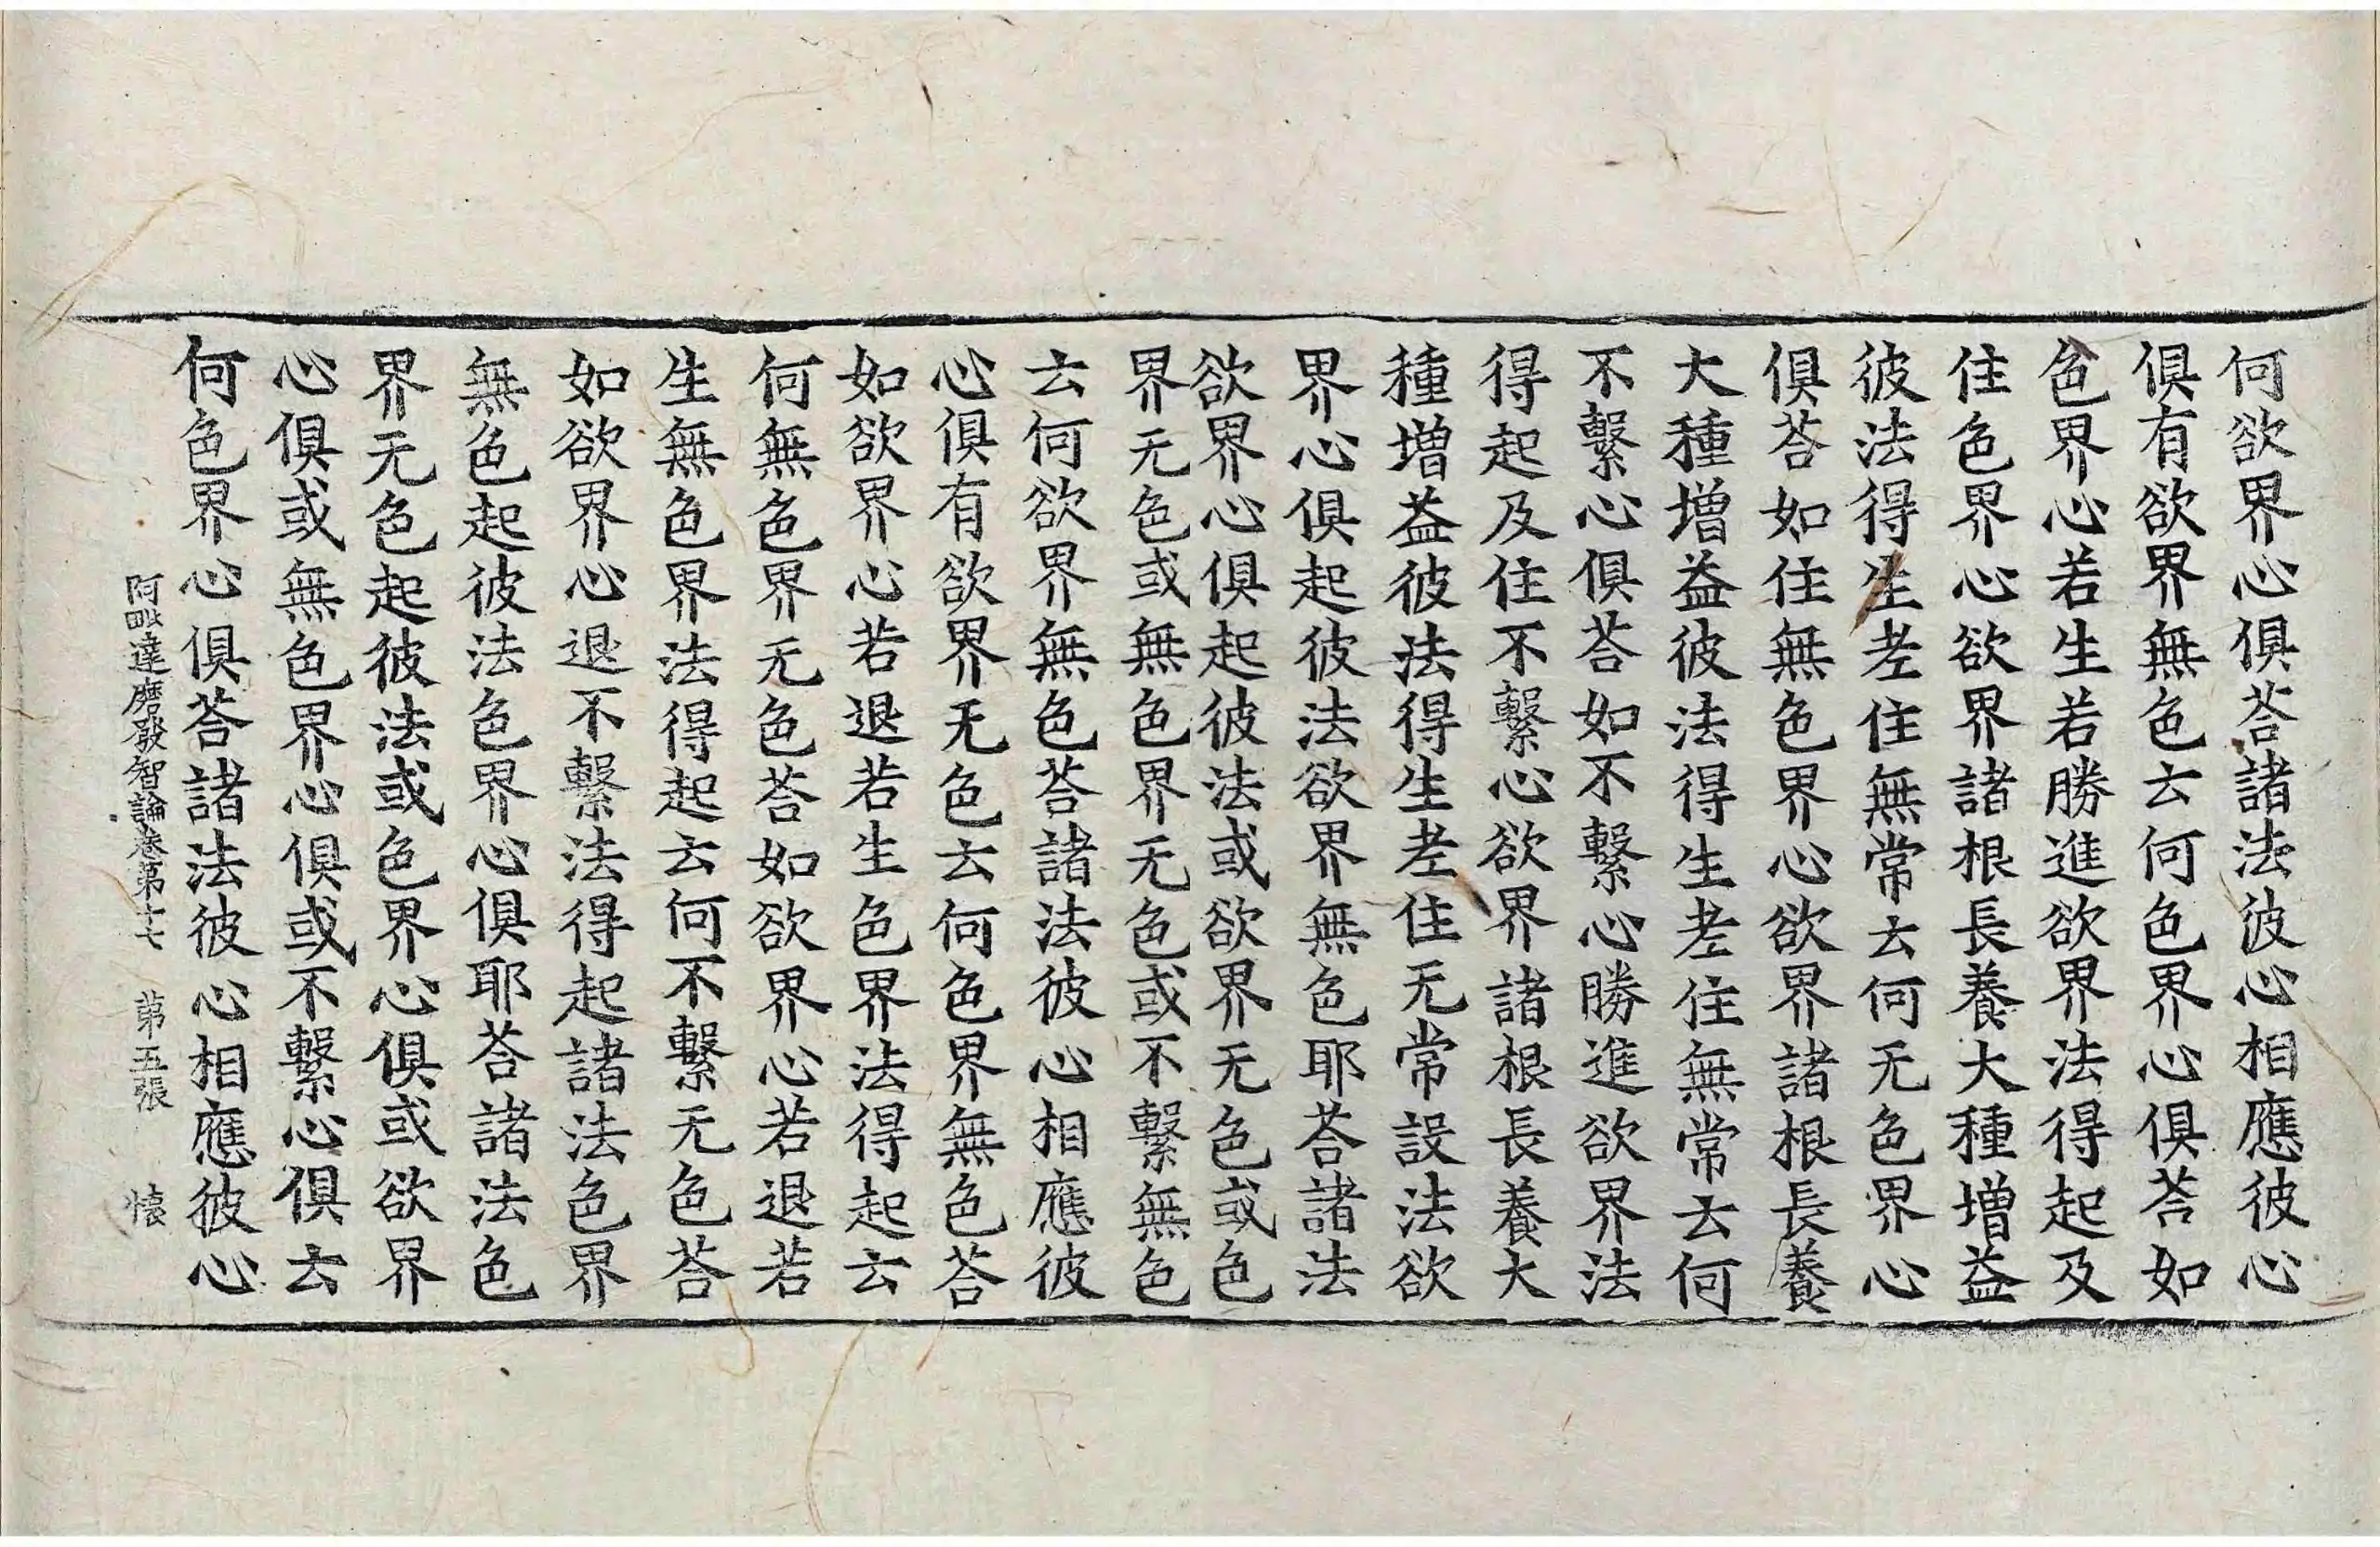 何欲界心俱荅諸法彼心相應彼心
俱有欲界無色云何色界心俱荅如
色界心若生若勝進欲界法得起及
住色界心欲界諸根長養大種增益
彼法得生老住無常云何无色界心
俱荅如住無色界心欲界諸根長養
大種增益彼法得生老住無常云何
不繫心俱荅如不繫心勝進欲界法
得起及住不繫心欲界諸根長養大
種增益彼法得生老住无常設法欲
界心俱起彼法欲界無色耶荅諸法
欲界心俱起彼法或欲界无色或色
界无色或無色界无色或不繫無色
云何欲界無色荅諸法彼心相應彼
心俱有欲界无色云何色界無色荅
如欲界心若退若生色界法得起云
何無色界无色荅如欲界心若退若
生無色界法得起云何不繫无色荅
如欲界心退不繫法得起諸法色界
無色起彼法色界心俱耶荅諸法色
界无色起彼法或色界心俱或欲界
心俱或無色界心俱或不繫心俱云
何色界心俱荅諸法彼心相應彼心
阿毗達磨發智論卷第十七 第五張 懐